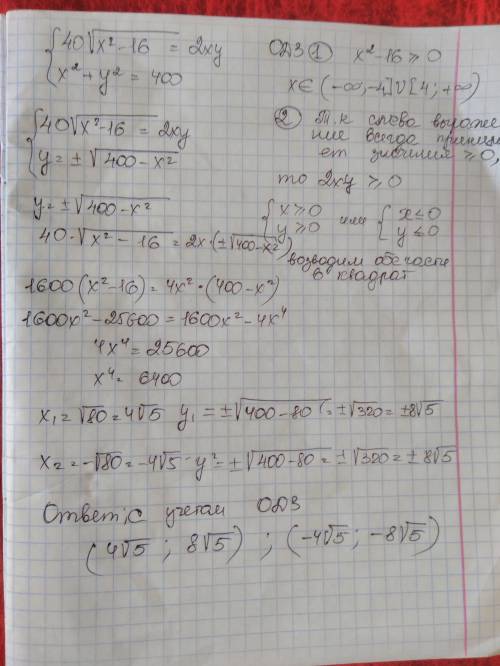 { 40√(x²-16) = 2xy
x² + y² = 400
ОДЗ ① x²-16 ≥ 0
x ∈ (-∞;-4] ∪ [4; +∞)
{ 40√(x²-16) = 2xy
y = ± √(400-x²)
② Т.к слева выраже
ние всегда принима
ет значения ≥ 0,
то 2xy ≥ 0
{ x ≥ 0 y ≥ 0 или { x ≤ 0 y ≤ 0
y = ± √(400-x²)
40·√(x²-16) = 2x·(±√(400-x²))
возводим обе части
в квадрат
1600(x²-16) = 4x²·(400-x²)
1600x²-25600 = 1600x²-4x⁴
4x⁴ = 25600
x⁴ = 6400
x₁ = √80 = 4√5 y₁ = ±√(400-80) = ±√320 = ±8√5
x₂ = -√80 = -4√5 - y² = ±√(400-80) = ±√320 = ±8√5
Ответ: с учетом ОДЗ
(4√5 ; 8√5) ; (-4√5; -8√5)